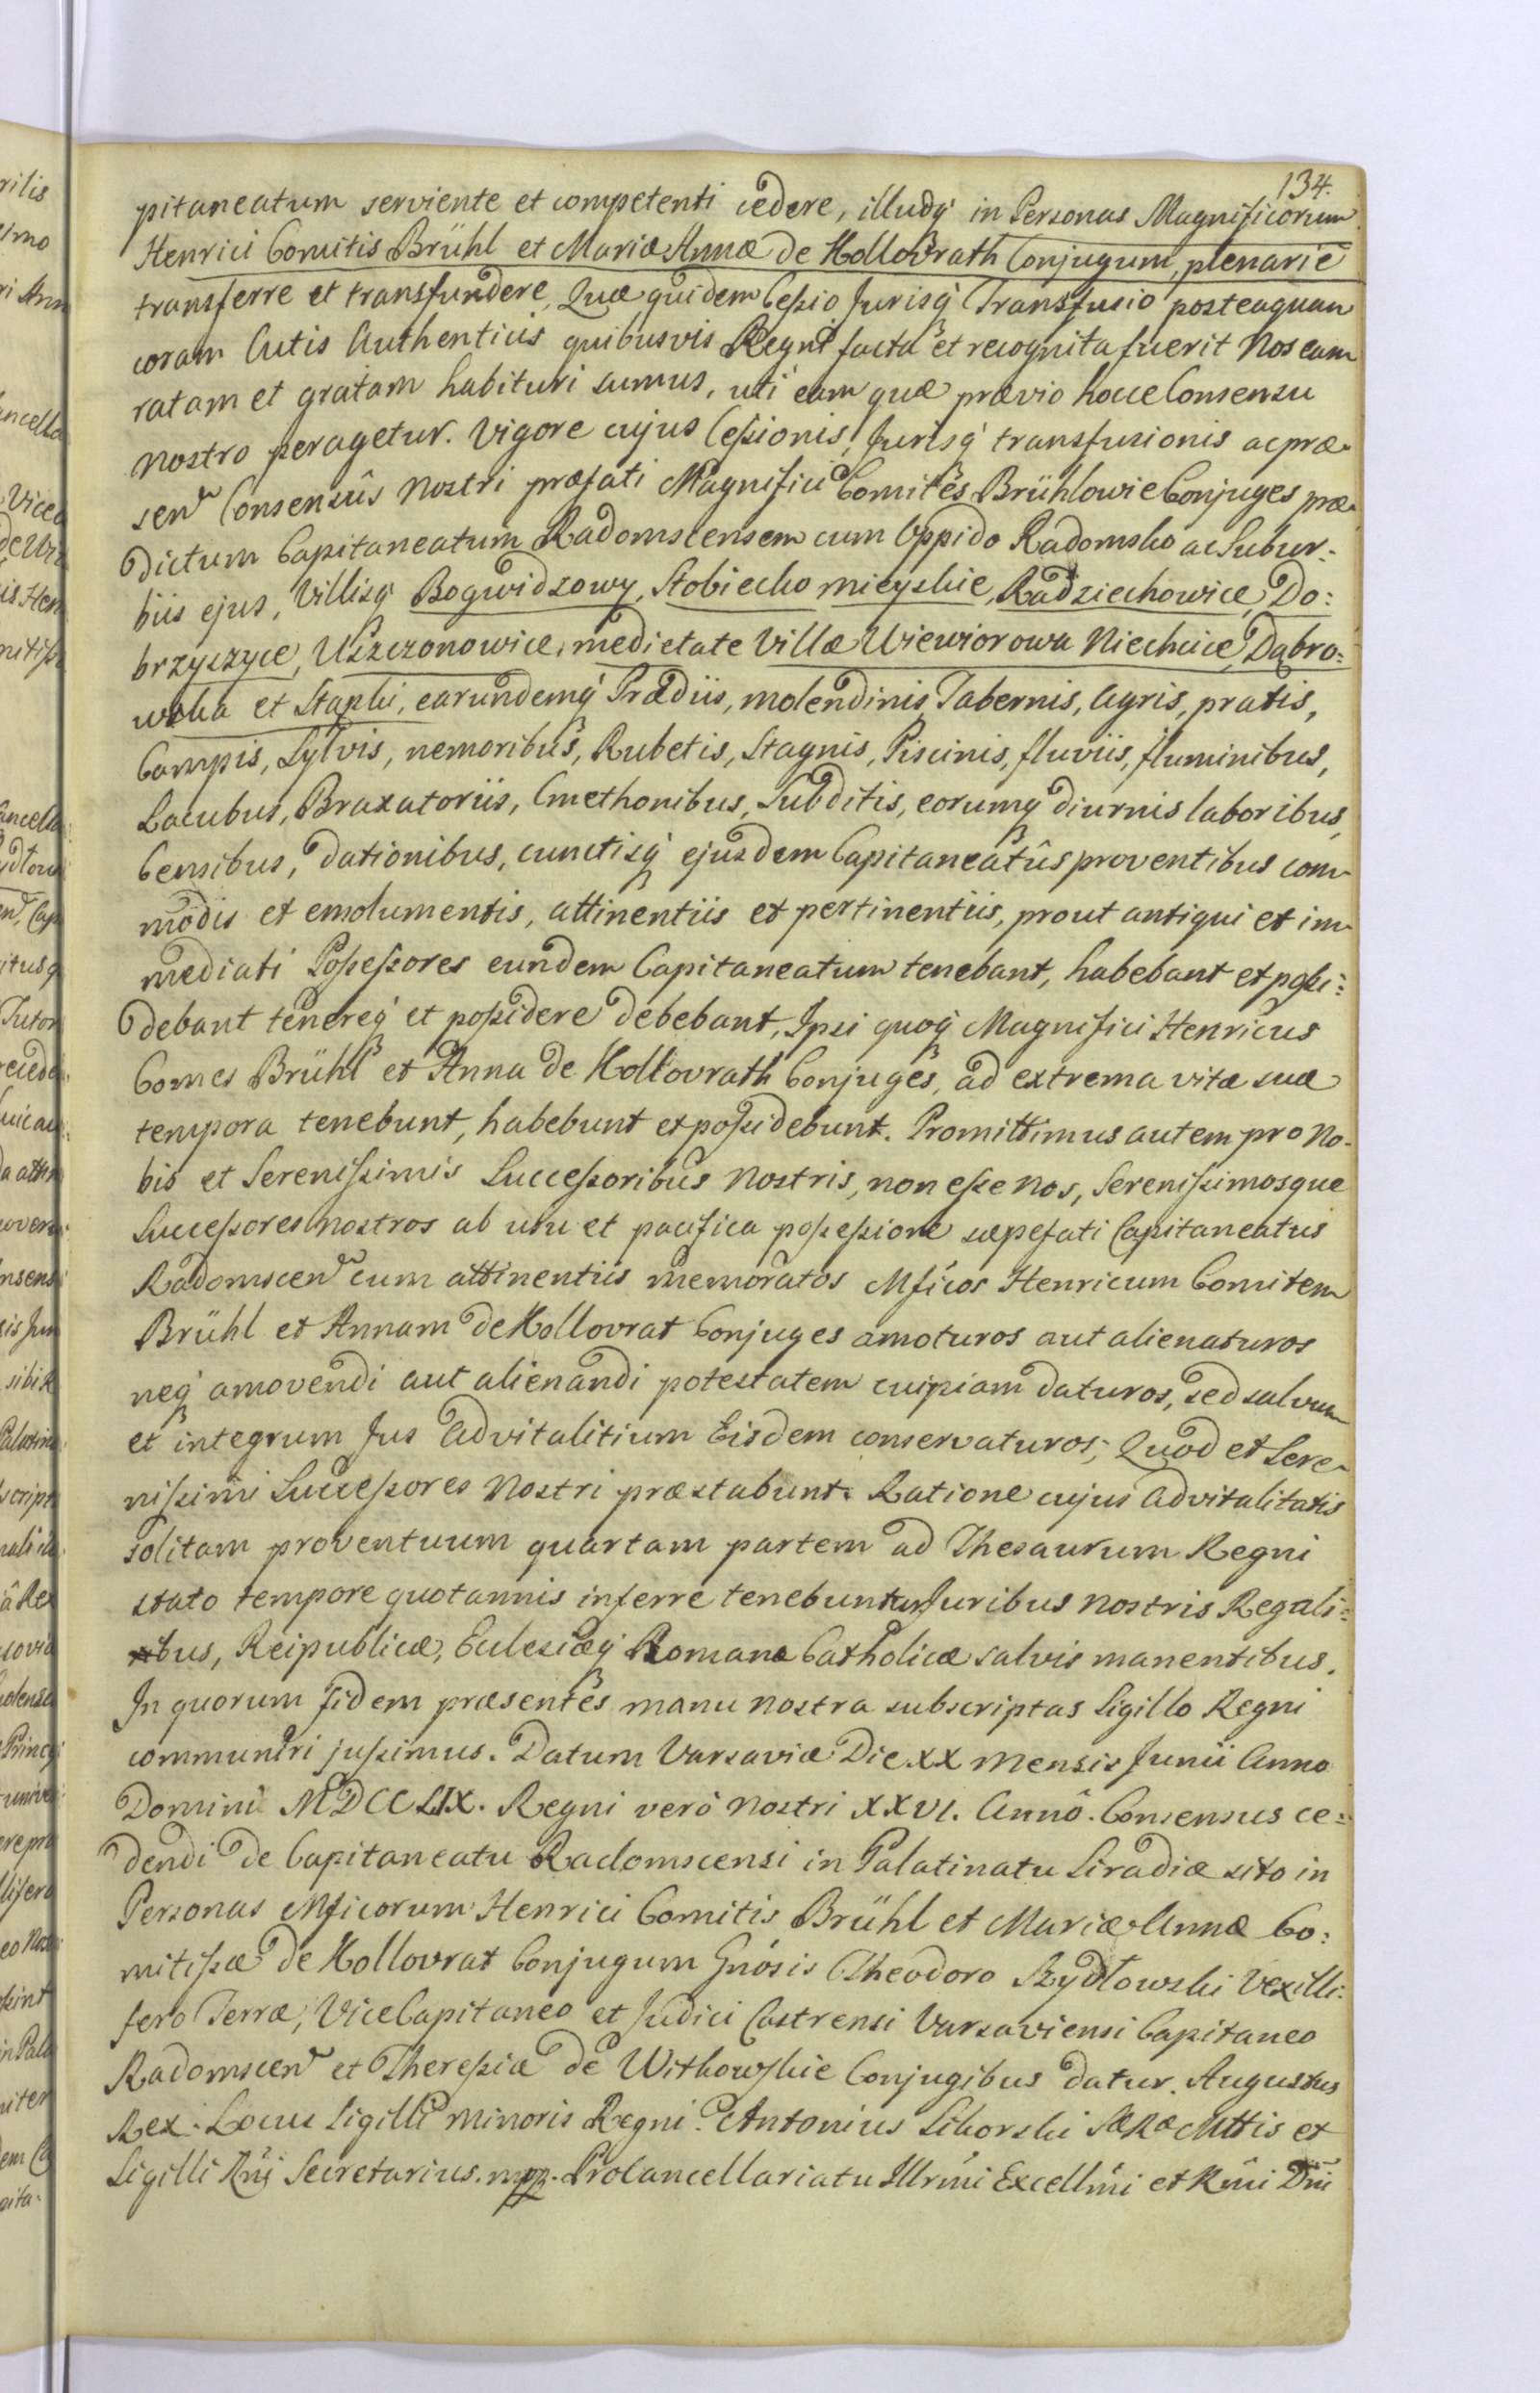 134.
pitaneatum serviente et competenti cedere, illudq́ in Personas Magnificorum
Henrici Comitis Brühl et Mariæ Annæ de Kollowrath Conjugum, plenarie
transferre et transfundere, Quæ quidem Cessio Jurisq́ Transfusio posteaquam
coram Actis Authenticis quibusvis Regni facta et recognita fuerit Nos eam
ratam et gratam habituri sumus, uti eam quæ prævio hocce Consensu
nostro peragetur. Vigore cujus Cessionis, Jurisq́ transfusionis ac præ-
sen Consensûs Nostri præfati Magnifici Comites Brühlowie Conjuges præ-
dictum Capitaneatum Radomscensem cum Oppido Radomsko ac Subur-
biis ejus, Villisq́ Bogwidzowy, Stobiecko mieyskie, Radziechowice, Do:
brzyczyce, Uszczonowice, medietate Villæ Wiewiorowa Niechcice, Dąbro:
wka et Stapki, earundemq́ Prædiis, molendinis, Tabernis, Agris, pratis,
Campis, Sylvis, nemoribus, Rubetis, Stagnis, Piscinis, fluviis, fluminibus,
Lacubus, Braxatoriis, Cmethonibus, Subditis, eorumq́ diurnis laboribus,
Censibus, Dationibus, cunctisq́ ejusdem Capitaneatûs proventibus com-
modis et emolumentis, attinentiis et pertinentiis, prout antiqui et im-
mediati Possessores eundem Capitaneatum tenebant, habebant et possi:
debant tenereq́ et possidere debebant, Ipsi quoq́ Magnifici Henricus
Comes Brühl et Anna de Kollovrath Conjuges, ad extrema vitæ suæ
tempora tenebunt, habebunt et possidebunt. Promittimus autem pro No-
bis et Serenissimis Successoribus Nostris, non esse nos, Serenissimosque
Successores nostros ab usu et pacifica possessione sæpefati Capitaneatus
Radomscen cum attinentiis memoratos Mficos Henricum Comitem
Brühl et Annam de Kollovrat Conjuges amoturos aut alienaturos
neq́ amovendi aut alienandi potestatem cuipiam daturos, sed salvum
et integrum Jus Advitalitium Eisdem conservaturos; Quod et Sere-
nissimi Successores Nostri præstabunt. Ratione cujus Advitalitatis
solitam proventuum quartam partem ad Thesaurum Regni
stato tempore quotannis inferre tenebuntur Juribus Nostris Regali:
bus, Reipublicæ, Eclesiæq́ Romanæ Catholicæ salvis manentibus.
In quorum fidem præsentes manu nostra subscriptas Sigillo Regni
communiri jussimus. Datum Varsaviæ Die XX mensis Junii Anno
Domini MDCCLIX. Regni verò Nostri XXVI. Annô. Consensus ce:
dendi de Capitaneatu Radomscensi in Palatinatu Siradiæ sito in
Personas Mficorum Henrici Comitis Brühl et Mariæ Annæ Co:
mitissæ de Kollovrat Conjugum Gnósis Theodoro Szydłowski Vexilli:
fero Terræ, ViceCapitaneo et Judici Castrensi Varsaviensi Capitaneo
Radomscen et Theressiæ de Witkowskie Conjugibus datur. Augustus
Rex. Locus Sigilli Minoris Regni. Antonius Sikorski SæRæMttis et
Sigilli Rni Secretarius. mpp. Procancellariatu Illrmi Excellmi et Rmi Dni